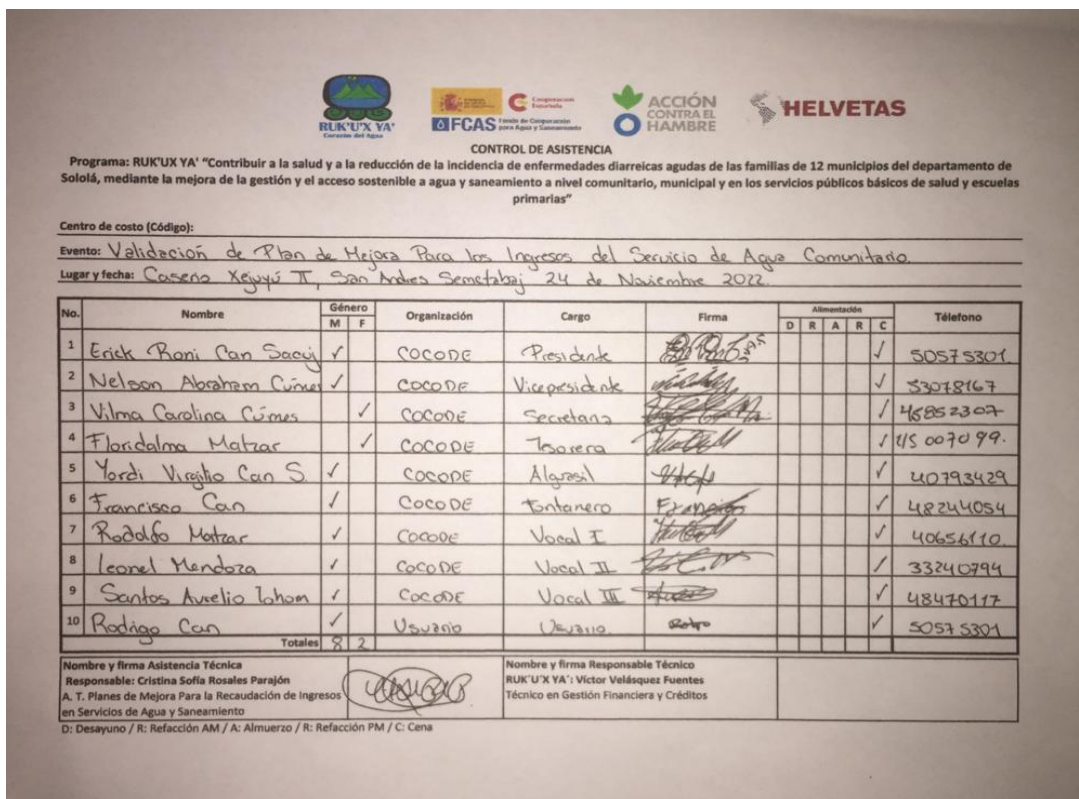 RUK'U'X YA'
Corazón del Agua
Cooperación Española
FCAS Fondo de Cooperación para Agua y Saneamiento
ACCIÓN CONTRA EL HAMBRE
HELVETAS
CONTROL DE ASISTENCIA
Programa: RUK'UX YA' “Contribuir a la salud y a la reducción de la incidencia de enfermedades diarreicas agudas de las familias de 12 municipios del departamento de
Sololá, mediante la mejora de la gestión y el acceso sostenible a agua y saneamiento a nivel comunitario, municipal y en los servicios públicos básicos de salud y escuelas
primarias”
Centro de costo (Código):
Evento: Validación de Plan de Mejora Para los Ingresos del Servicio de Agua Comunitario.
Lugar y fecha: Caserio Xejuyú II, San Andres Semetabaj 24 de Noviembre 2022.
No. Nombre Género Organización Cargo Firma Alimentación Télefono
M F D R A R C
1 Erick Roni Can Sacuj ✓ COCODE Presidente ✓ 50575301.
2 Nelson Abraham Cúmes ✓ COCODE Vicepresidente ✓ 53078167
3 Vilma Carolina Cúmes ✓ COCODE Secretaria ✓ 45852307
4 Floridalma Matzar ✓ COCODE Tesorera ✓ 45007099.
5 Yordi Virgilio Can S. ✓ COCODE Alguasil ✓ 40793429
6 Francisco Can ✓ COCODE Fontanero ✓ 48244054
7 Rodolfo Matzar ✓ COCODE Vocal I ✓ 40656110.
8 Leonel Mendoza ✓ COCODE Vocal II ✓ 33240794
9 Santos Aurelio Tohom ✓ COCODE Vocal III ✓ 48470117
10 Rodrigo Can ✓ Usuario Usuario. ✓ 50575301
Totales 8 2
Nombre y firma Asistencia Técnica
Responsable: Cristina Sofía Rosales Parajón
A. T. Planes de Mejora Para la Recaudación de Ingresos
en Servicios de Agua y Saneamiento
Nombre y firma Responsable Técnico
RUK'U'X YA': Víctor Velásquez Fuentes
Técnico en Gestión Financiera y Créditos
D: Desayuno / R: Refacción AM / A: Almuerzo / R: Refacción PM / C: Cena